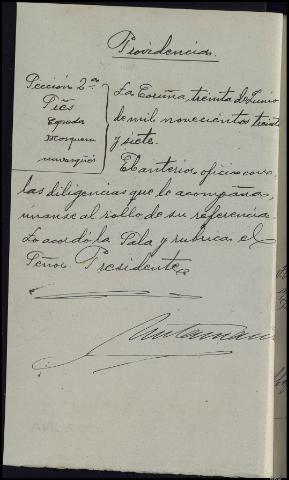 Providencia.
Sección 2ª
Sres
Tejeda
Mosquera
La Coruña, treinta de Junio
de mil novecientos treinta
y siete.
El anterior oficio con
las diligencias que lo acompaña,
únanse al rollo de su referencia.
Lo acordó la Sala y rubrica el
Señor Presidente